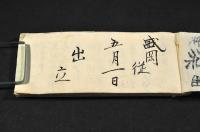 盛岡従
五月一日
出立